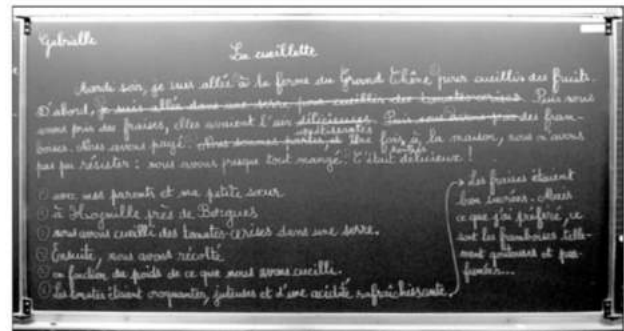 Gabrielle
La cueillette
Mardi soir, je suis allée à la ferme du Grand Chêne pour cueillir des fruits.
D'abord, je suis allée dans une serre pour cueillir des tomates cerises. Puis nous
avons pris des fraises, elles avaient l'air délicieuses. Puis nous avons pris des fram-
boises. Nous avons payé. Nous sommes partis, et Une fois à la maison, nous n'avons
pas pu résister : nous avons presque tout mangé. C'était délicieux !
avec mes parents et ma petite sœur
à près de Bergues
nous avons cueilli des tomates-cerises dans une serre.
Ensuite, nous avons récolté
en fonction du poids de ce que nous avons cueilli.
Les tomates étaient croquantes, juteuses et d'une acidité rafraîchissante.
Les fraises étaient
bien sucrées. Mais
ce que j'ai préféré, ce
sont les framboises telle-
ment goûteuses et par-
fumées...